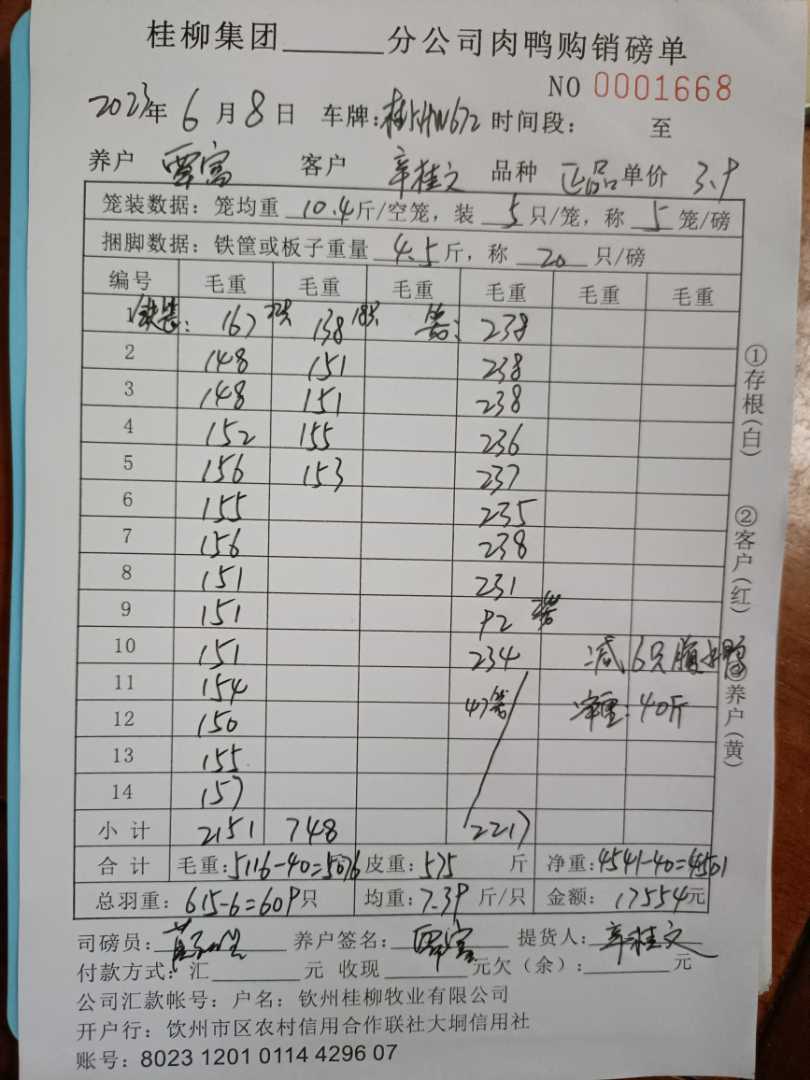 桂柳集团______分公司肉鸭购销磅单
NO 0001668
2023年 6 月 8 日 车牌: 时间段: 至
养户 覃富 客户 辛桂文 品种 正品 单价 3.9
笼装数据: 笼均重 10.4 斤/空笼, 装 5 只/笼, 称 5 笼/磅
捆脚数据: 铁筐或板子重量 4.5 斤, 称 20 只/磅
编号 毛重 毛重 毛重 毛重 毛重 毛重
167 138 18只 笼: 238
2 148 151 238
3 148 151 238
4 152 155 236
5 156 153 237
6 155 235
7 156 238
8 151 231
9 151 92 2笼
10 151 234 减6只腹水鸭
11 154 47笼 净重: 40斤
12 150
13 155
14 157
小计 2151 748 2217
合计 毛重: 5116-40=5076 皮重: 575 斤 净重: 4541-40=4501
总羽重: 615-6=609只 均重: 7.39 斤/只 金额: 17554元
司磅员: 养户签名: 覃富 提货人: 辛桂文
付款方式: 汇______元 收现______元欠(余):______元
公司汇款帐号: 户名: 钦州桂柳牧业有限公司
开户行: 钦州市区农村信用合作联社大垌信用社
账号: 8023 1201 0114 4296 07
①存根(白)
②客户(红)
③养户(黄)